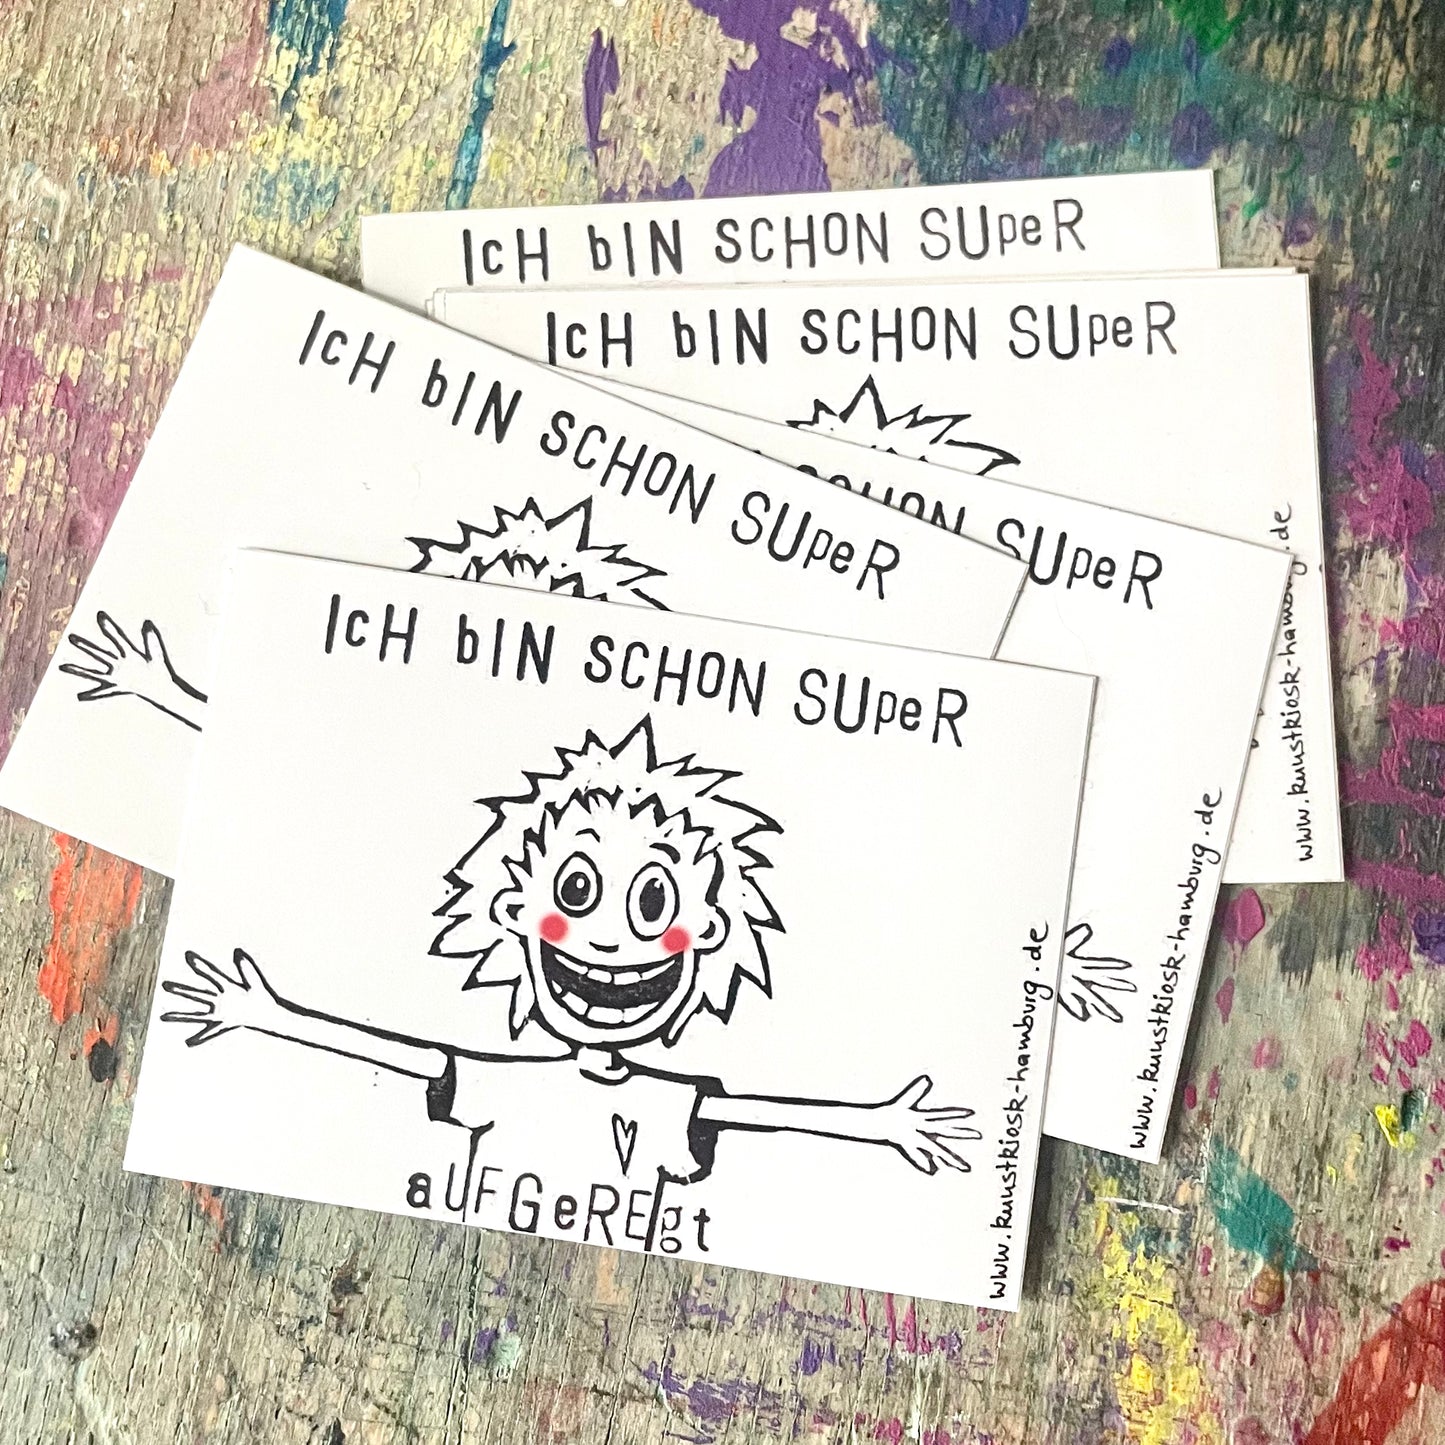 IcH bIN SCHON SUpeR
IcH bIN SCHON SUpeR
IcH bIN SCHON SUpeR
SCHON SUpeR
IcH bIN SCHON SUpeR
aUFGeREgt
www.kunstkiosk-hamburg.de
www.kunstkiosk-hamburg.de
www.kunstkiosk-hamburg.de